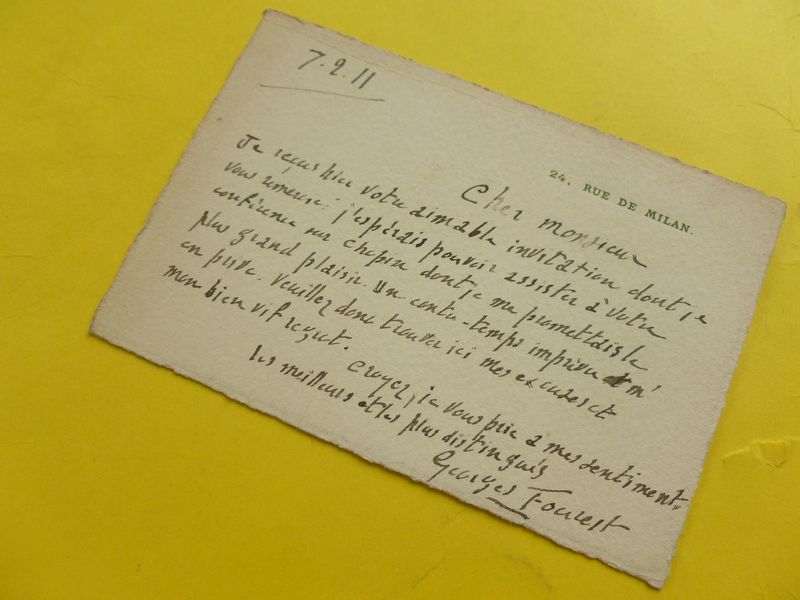 7.2.11
24, RUE DE MILAN.
Cher monsieur
Je reçus hier votre aimable invitation dont je
vous remercie : j'espérais pouvoir assister à votre
conférence sur Chopin dont je me promettais le
plus grand plaisir. Un contre-temps imprévu m'
en prive. Veuillez donc trouver ici mes excuses et
mon bien vif regret.
Croyez, je vous prie à mes sentiments
les meilleurs et les plus distingués
Georges Fourest